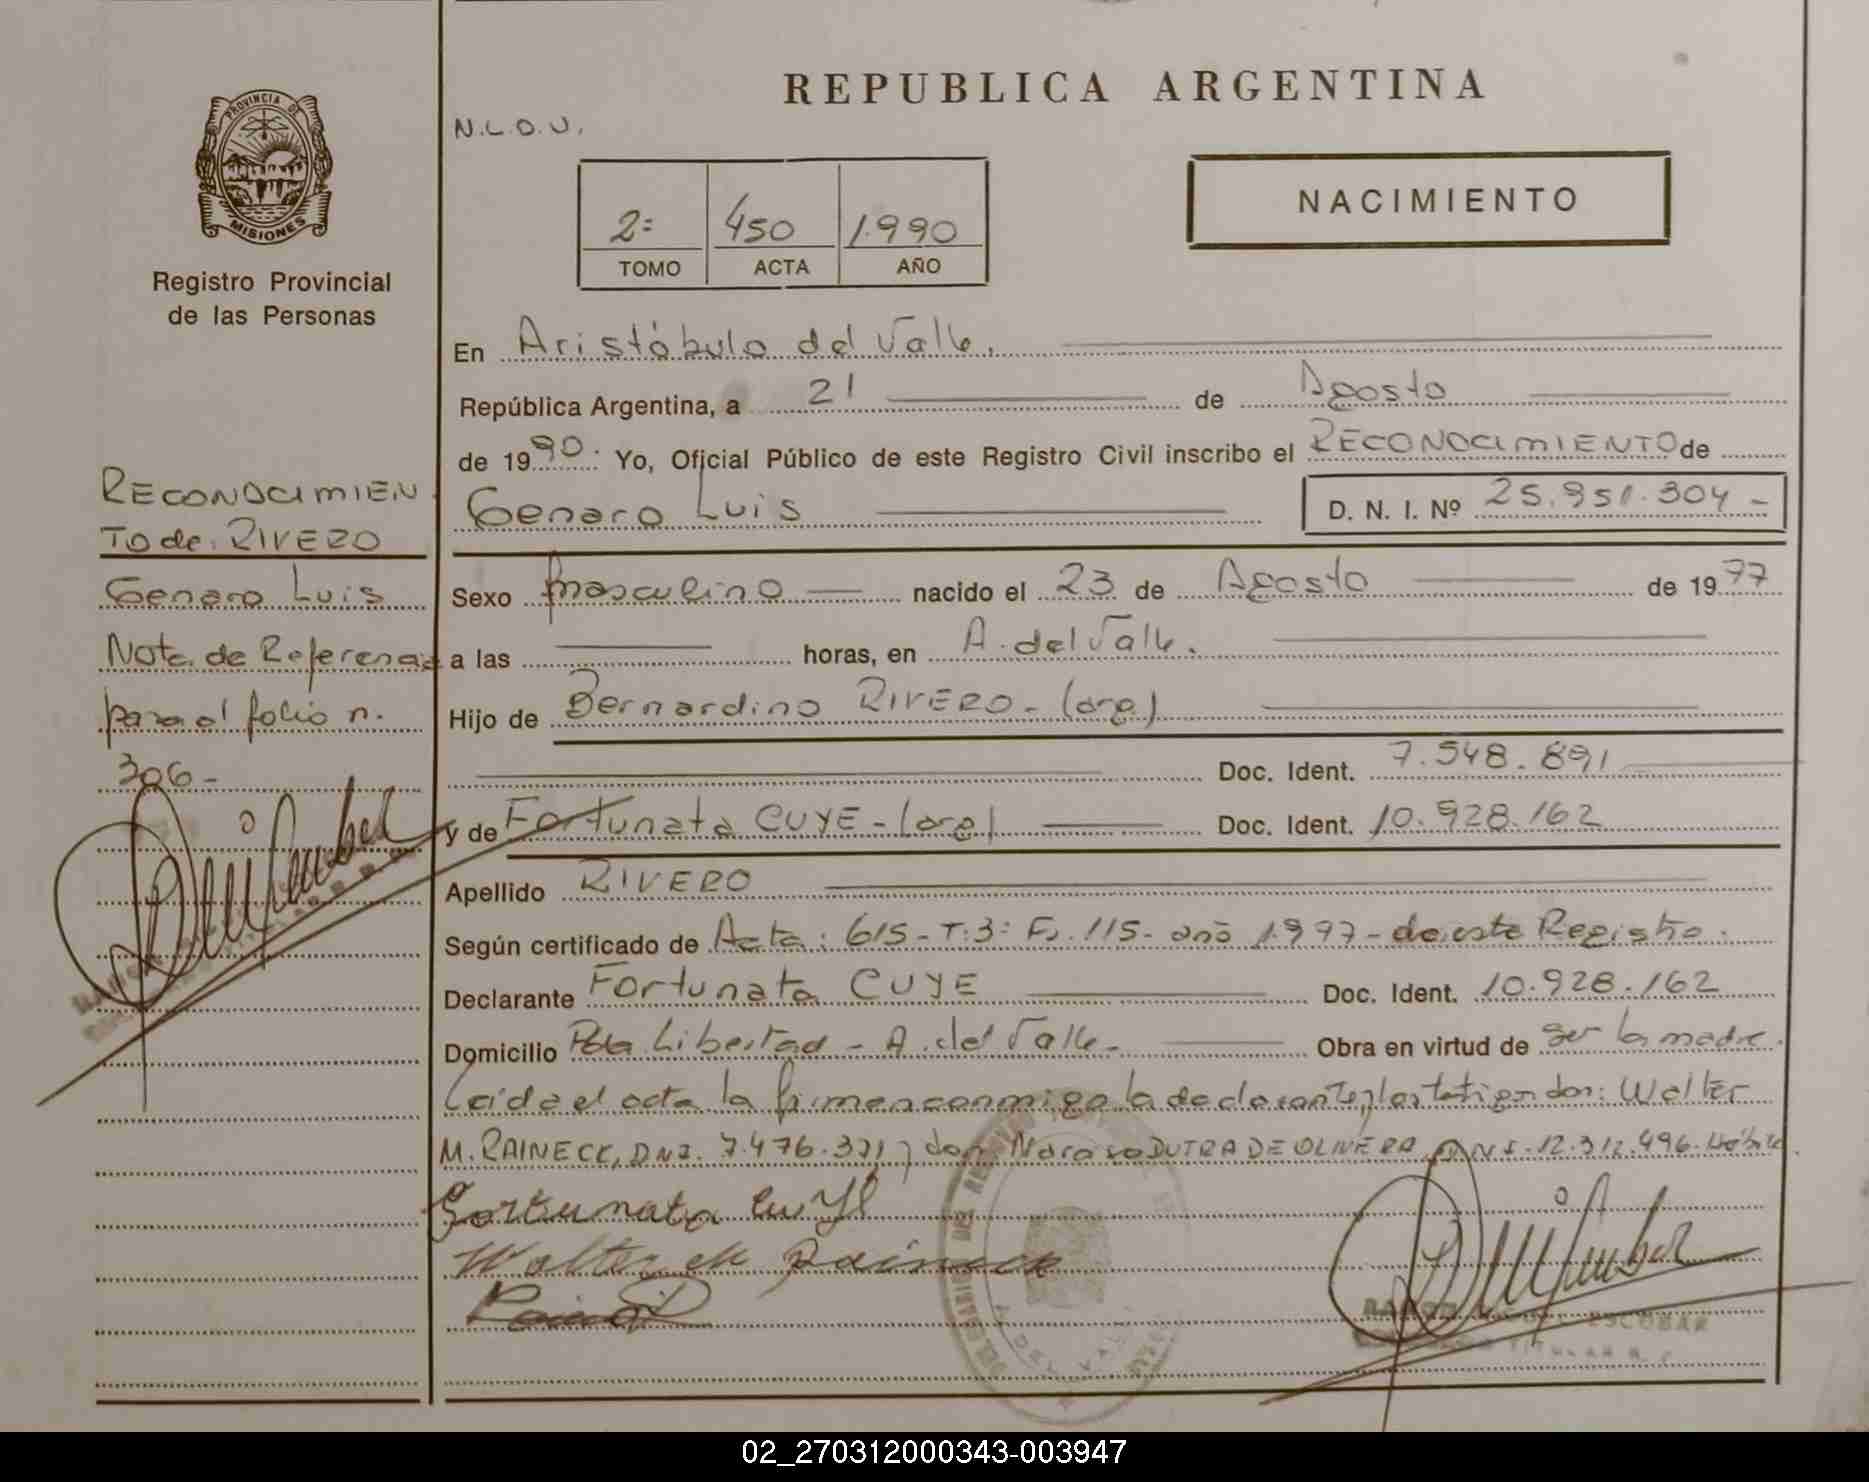 PROVINCIA DE
MISIONES
Registro Provincial
de las Personas
RECONOCIMIEN
TO de: RIVERO
Genaro Luis
Nota de Referencia
para el folio n.
306-
REPUBLICA ARGENTINA
N.L.O.U.
NACIMIENTO
2= 450 1.990
TOMO ACTA AÑO
En Aristóbulo del Valle.
República Argentina, a 21 de Agosto
de 1990. Yo, Oficial Público de este Registro Civil inscribo el RECONOCIMIENTO de
Genaro Luis D. N. I. Nº 25.951.304-
Sexo masculino nacido el 23 de Agosto de 1977
a las horas, en A. del Valle.
Hijo de Bernardino RIVERO-(arg)
Doc. Ident. 7.548.891
y de Fortunata CUYE-(arg) Doc. Ident. 10.928.162
Apellido RIVERO
Según certificado de Acta: 615-T:3: Fo.115- año 1.977-de este Registro.
Declarante Fortunata CUYE Doc. Ident. 10.928.162
Domicilio Pda Libertad - A. del Valle- Obra en virtud de ser la madre.
Leida el acta la firman conmigo la declarante, los testigos don: Walter
M. RAINECK, DNI. 7.476.371 y don DUTRA DE OLIVERA DNI-12.312.496-Hábil
Fortunata Cuye
Walter M Raineck
ESCOBAR
TITULAR R. C.
02_270312000343-003947